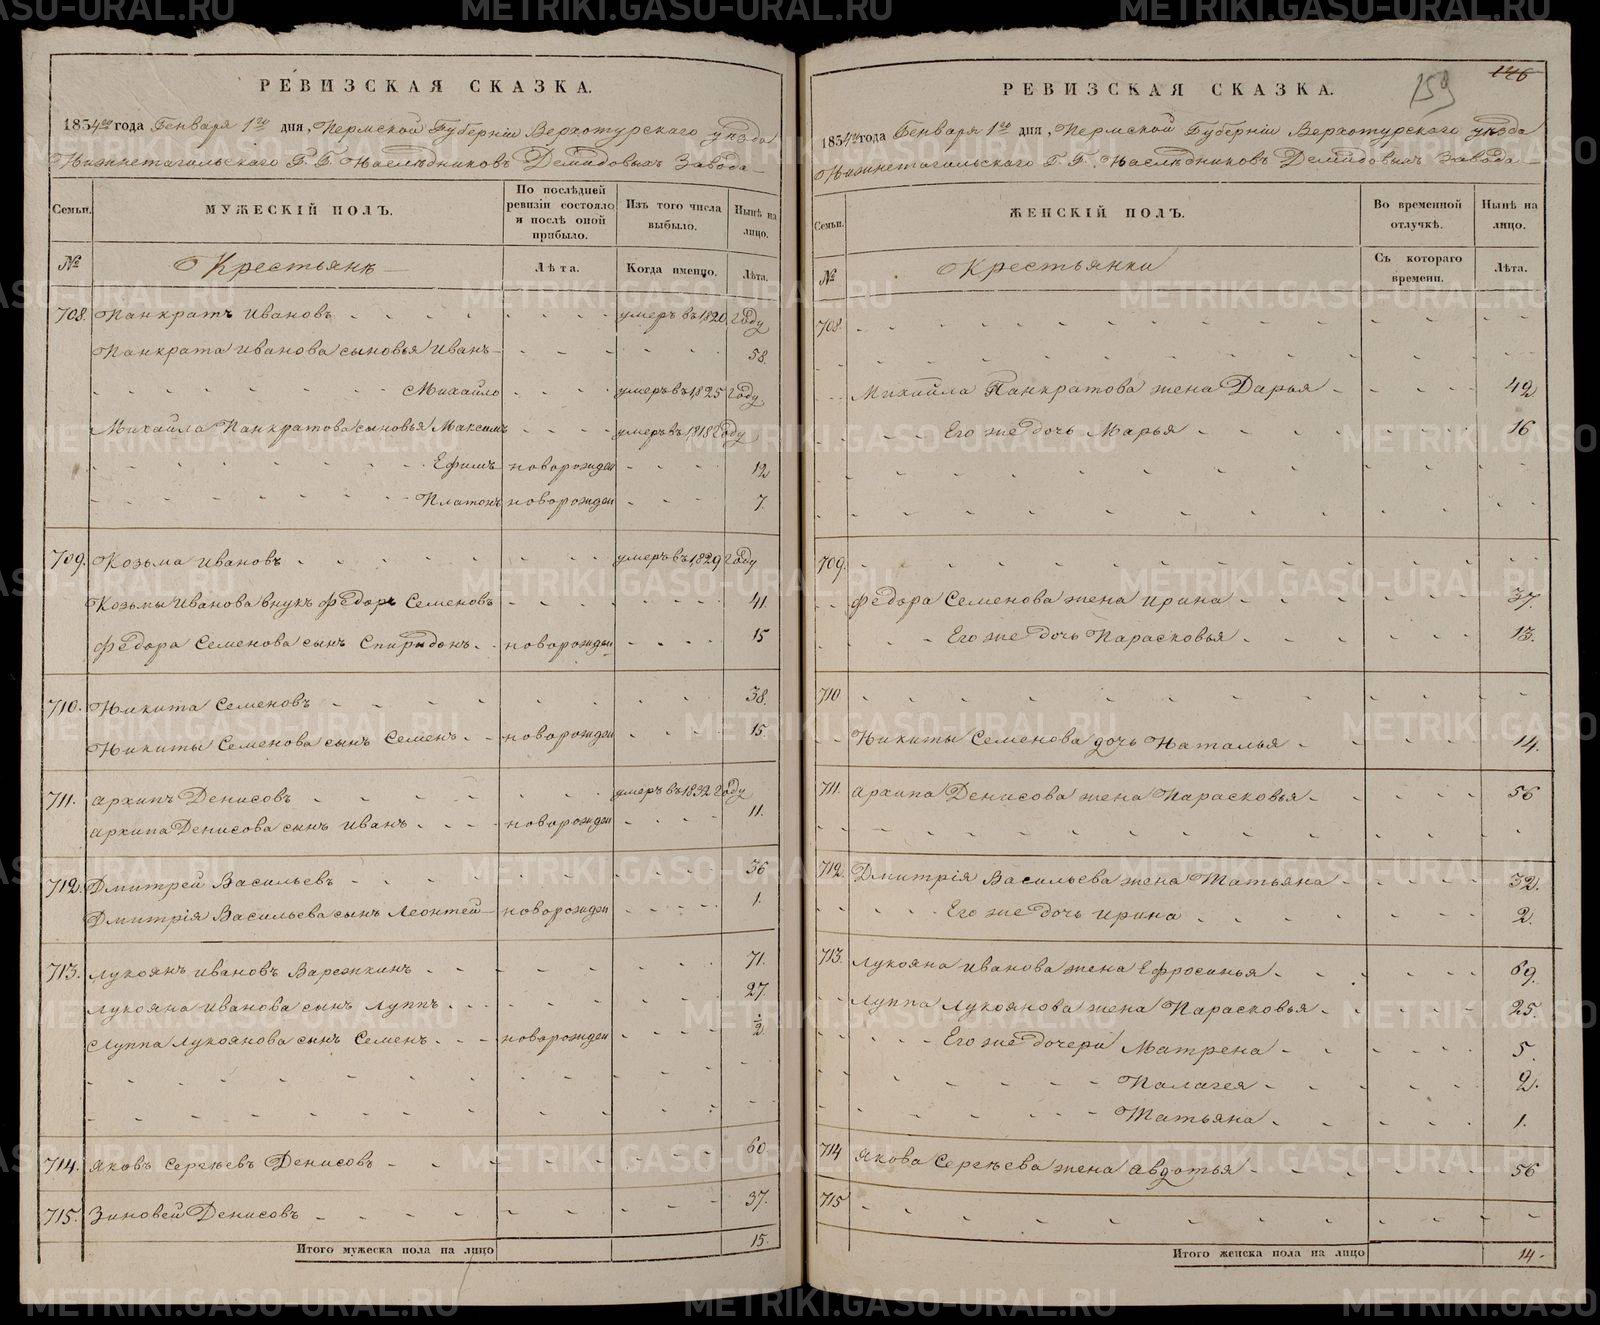 РЕВИЗСКАЯ СКАЗКА.
1834го года Генваря 1го дня, Пермской Губерніи Верхотурскаго уѣзда
Нижнетагильскаго Г. Г. Наслѣдниковъ Демидовыхъ Завода
Семьи. МУЖЕСКІЙ ПОЛЪ. По послѣдней ревизіи состояло и послѣ оной прибыло. Изъ того числа выбыло. Нынѣ на лицо.
№ Крестьянѣ Лѣта. Когда именно. Лѣта.
708. Панкратъ Ивановъ умеръ въ 1820 году
Панкрата Иванова сыновья Иванъ 58.
Михайло умеръ въ 1825 году
Михайла Панкратова сыновья Максимъ умеръ въ 1818 году
Ефимъ новорожден 12
Платонъ новорожден 7.
709. Козьма Ивановъ умеръ въ 1829 году
Козьмы Иванова внукъ Федоръ Семеновъ 41.
Федора Семенова сынъ Спиридонъ новорожден 15
710. Никита Семеновъ 38.
Никиты Семенова сынъ Семенъ новорожден 15.
711. Архипъ Денисовъ умеръ въ 1832 году
Архипа Денисова сынъ Иванъ новорожден 11.
712. Дмитрей Васильевъ 36
Дмитрія Васильева сынъ Леонтей новорожден 1.
713. Лукоянъ Ивановъ Варежкинъ 71.
Лукояна Иванова сынъ Луппъ 27.
Луппа Лукоянова сынъ Семенъ новорожден ½
714. Яковъ Сергѣевъ Денисовъ 60.
715. Зиновей Денисовъ 37.
Итого мужеска пола на лицо 15.
146
159
РЕВИЗСКАЯ СКАЗКА.
1834го года Генваря 1го дня, Пермской Губерніи Верхотурскаго уѣзда
Нижнетагильскаго Г. Г. Наслѣдниковъ Демидовыхъ Завода
Семьи. ЖЕНСКІЙ ПОЛЪ. Во временной отлучкѣ. Нынѣ на лицо.
№ Крестьянки Съ котораго времени. Лѣта.
708.
Михайла Панкратова жена Дарья 42
Его же дочь Марья 16
709.
Федора Семенова жена Ирина 37.
Его же дочь Парасковья 13.
710
Никиты Семенова дочь Наталья 14.
711. Архипа Денисова жена Парасковья 56
712. Дмитрія Васильева жена Татьяна 32.
Его же дочь Ирина 2.
713. Лукояна Иванова жена Ефросинья 69.
Луппа Лукоянова жена Парасковья 25.
Его же дочери Матрена 5.
Палагея 2.
Татьяна 1.
714 Якова Сергѣева жена Авдотья 56
715
Итого женска пола на лицо 14.
METRIKI.GASO-URAL.RU